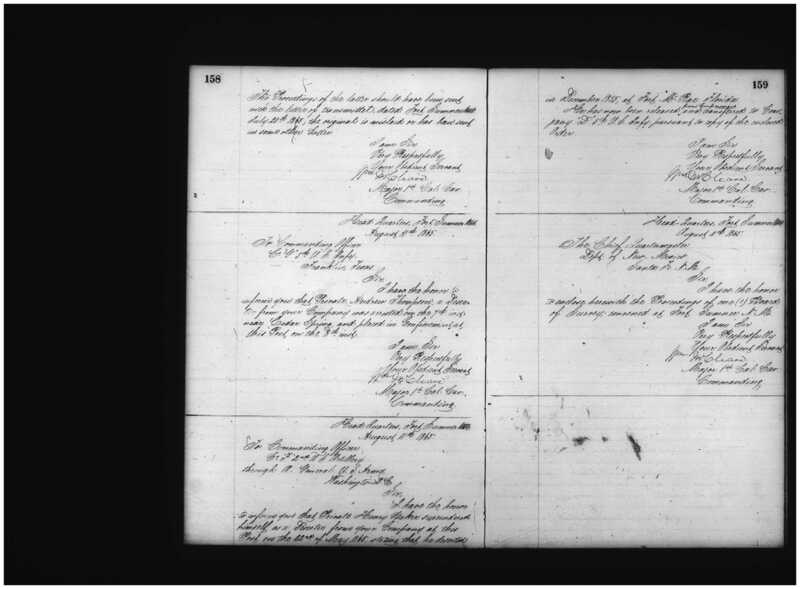 158
The Proceedings of the latter should have been sent
with the letter of transmittal, dated Fort Sumner N.M.
July 28th 1865, the original is mislaid or has been sent
in some other letter
I am Sir
Very Respectfully
Your Obedient Servant
Major 1st Cal. Cav.
Commanding
Head Quarters, Fort Sumner N.M.
August 11th 1865
To Commanding Officer
5th U.S. Infy.
Franklin Texas
Sir
I have the honor to
inform you that Private Andrew Thompson, a Deser-
ter from your Company was arrested on the 7th inst.
near Cedar Spring and placed in Confinement at
this Post on the 8th inst.
I am Sir
Very Respectfully
Your Obedient Servant
Major 1st Cal. Cav.
Commanding
Head Quarters, Fort Sumner N.M.
August 11th 1865
To Commanding Officer
2nd U.S. Artillery
through A. General U.S. Army
Washington D.C.
Sir
I have the honor
to inform you that Private Henry surrendered
himself as a Deserter from your Company at this
Post on the 22nd of May 1865 stating that he deserted
159
in December 1861, at Fort Florida
He has now been released and transferred to Com-
pany 5th U.S. Infy, pursuant to copy of the enclosed
order
I am Sir
Very Respectfully
Your Obedient Servant
Major 1st Cal. Cav.
Commanding
Head Quarters, Fort Sumner N.M.
August 11th 1865
The Chief Quartermaster
Dept. of New Mexico
Santa Fe N.M.
Sir
I have the honor
to enclose herewith the Proceedings of one (1) Board
of Survey convened at Fort Sumner N.M.
I am Sir
Very Respectfully
Your Obedient Servant
Major 1st Cal. Cav.
Commanding